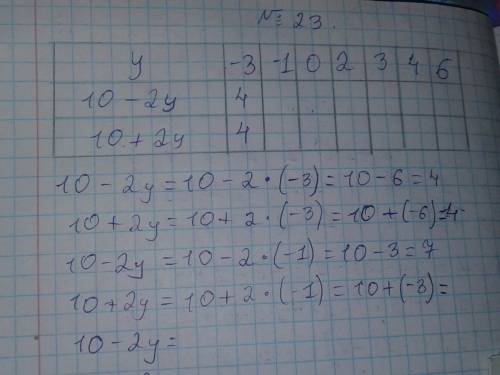 № 23.
y -3 -1 0 2 3 4 6
10 - 2y 4
10 + 2y 4
10 - 2y = 10 - 2 · (-3) = 10 - 6 = 4
10 + 2y = 10 + 2 · (-3) = 10 + (-6) = 4
10 - 2y = 10 - 2 · (-1) = 10 - 3 = 7
10 + 2y = 10 + 2 · (-1) = 10 + (-3) =
10 - 2y =